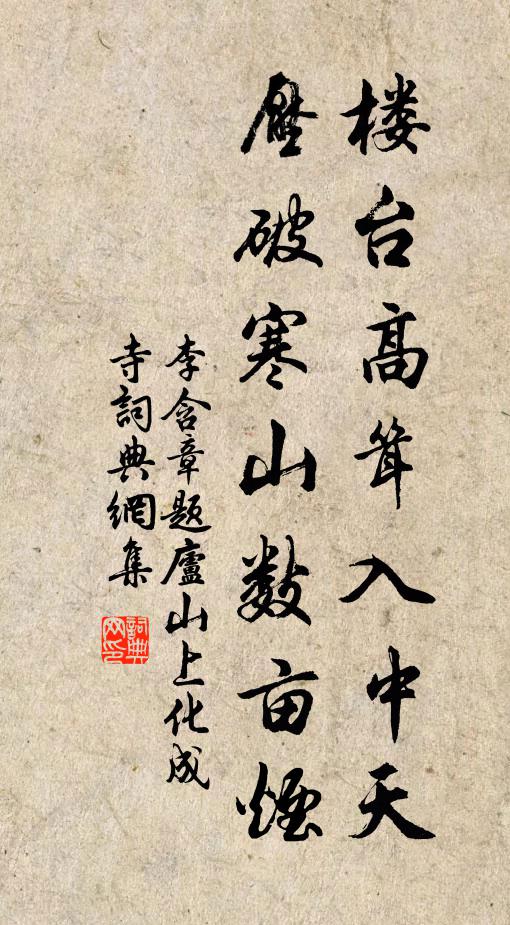 楼台高耸入中天
压破寒山数亩烟
李含章题廬山上化成
寺詞典網集
詞典
网印